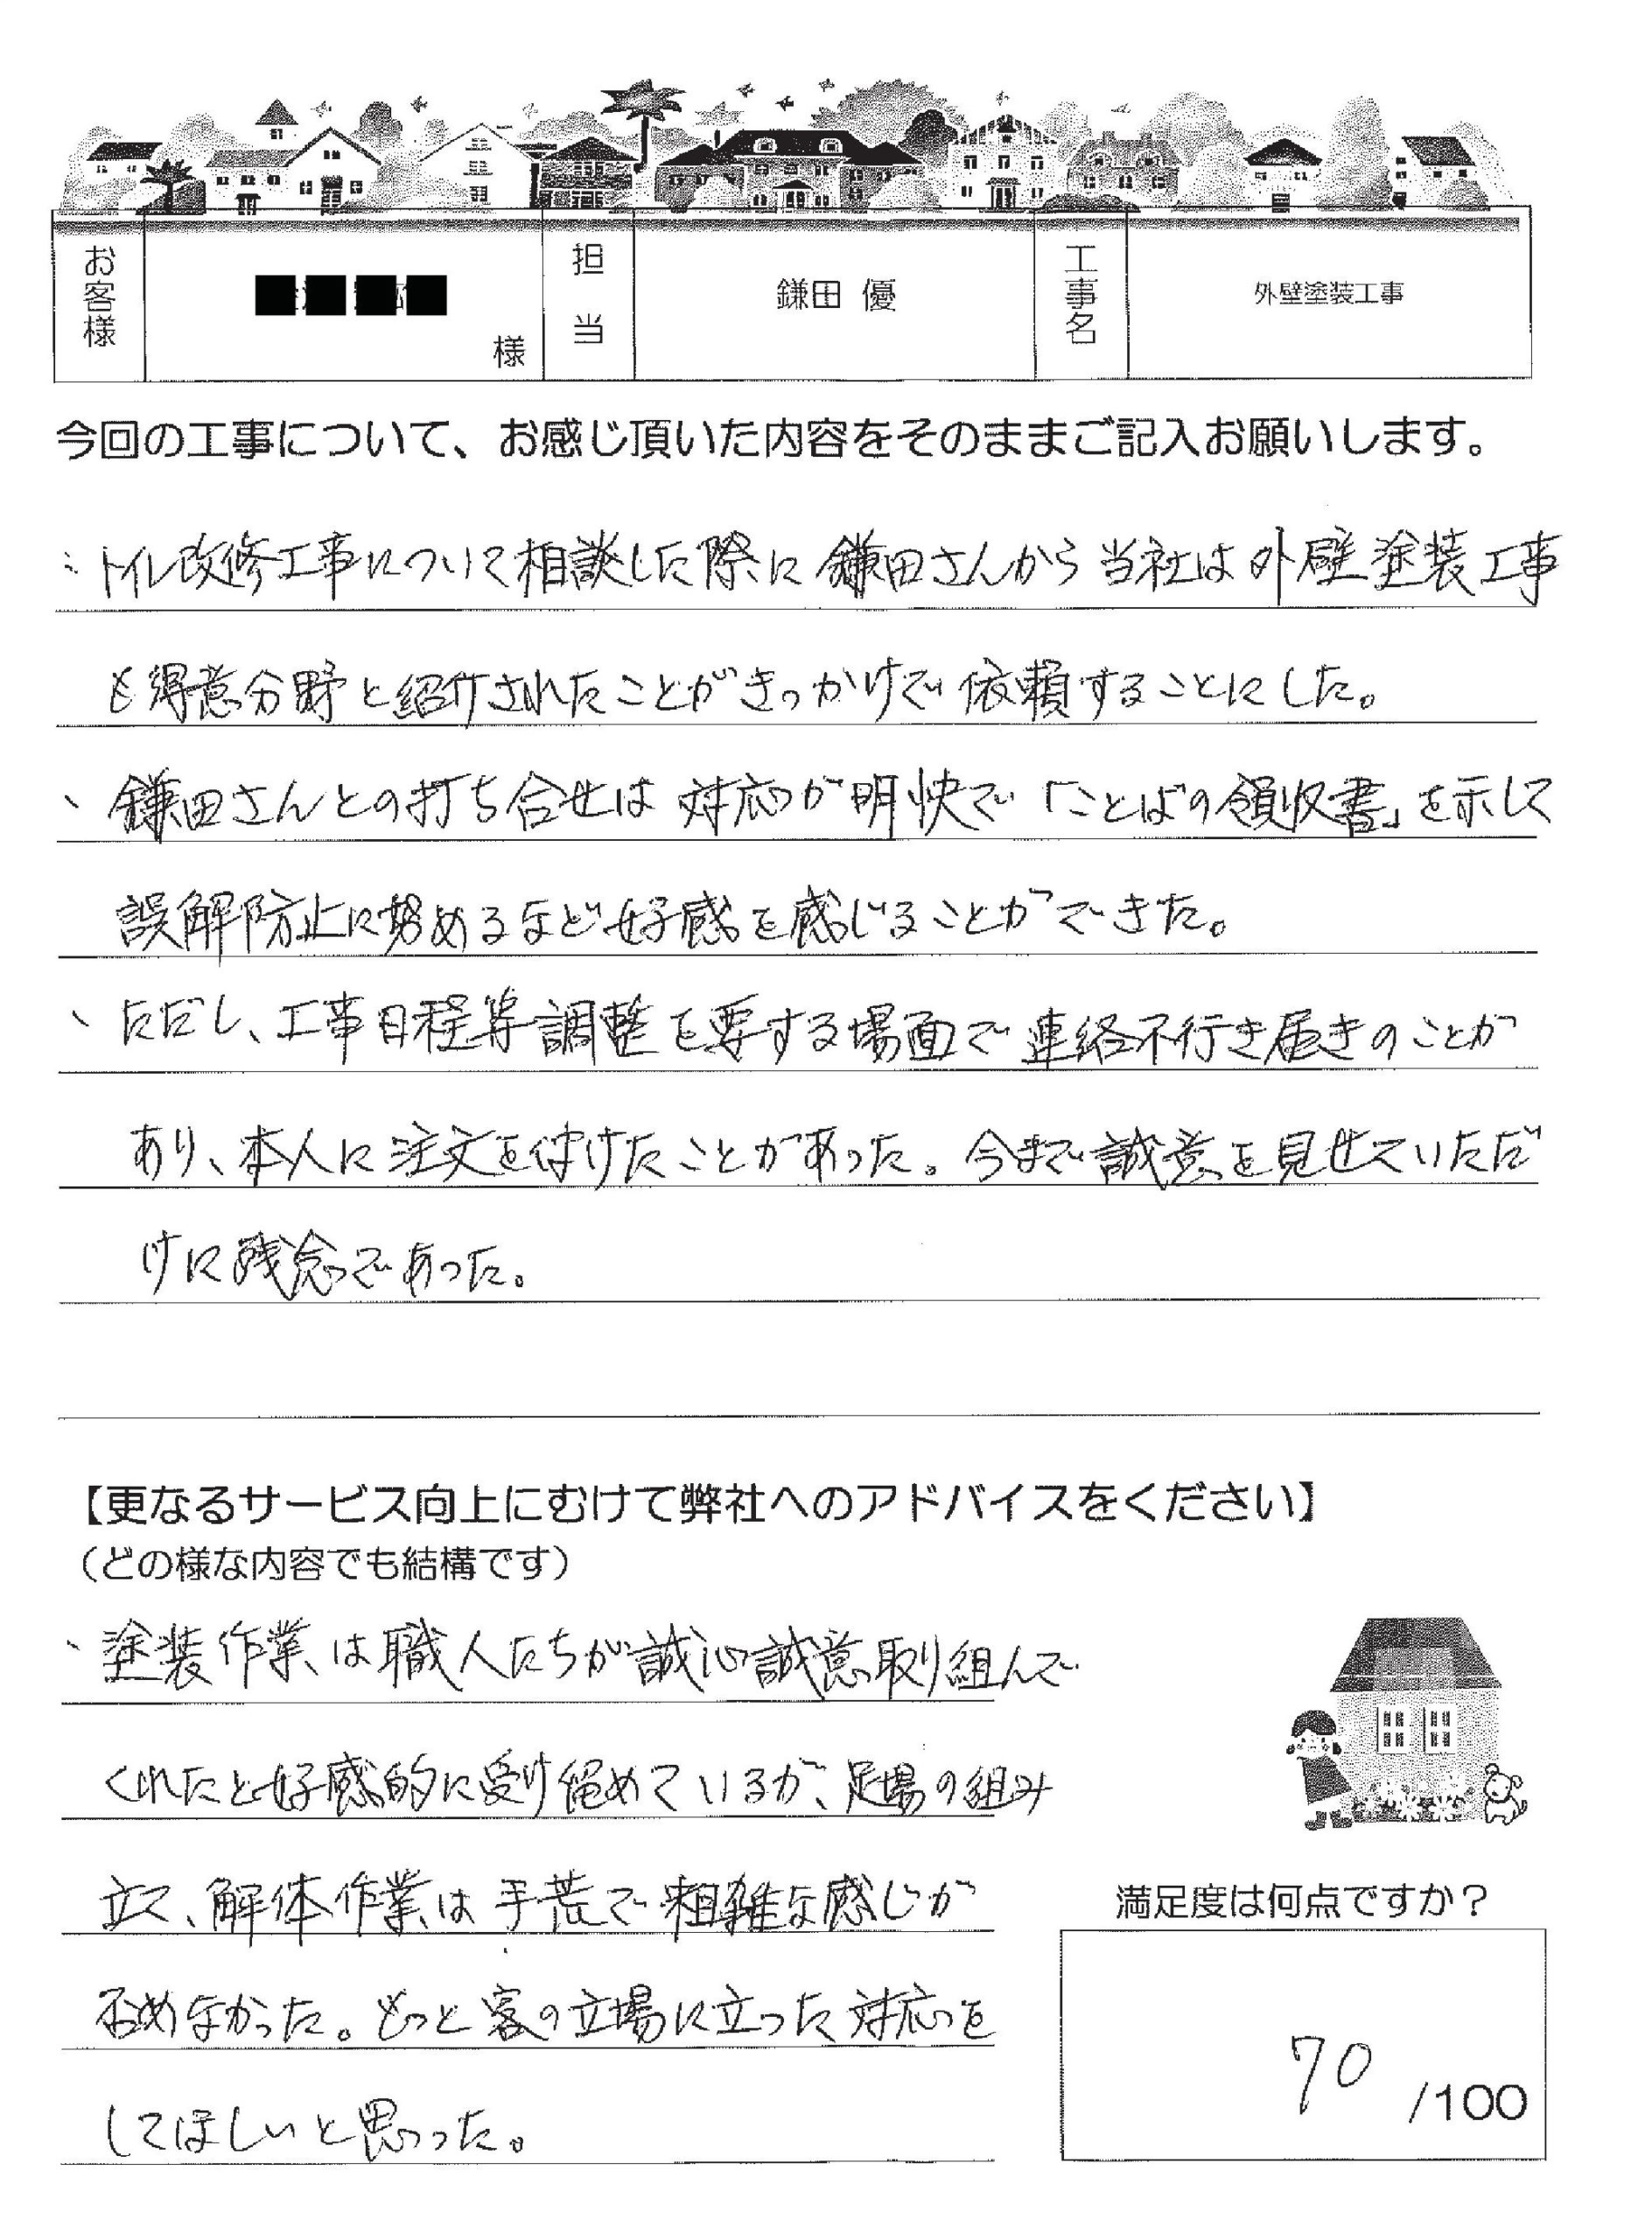 お客様 様 担当 鎌田 優 工事名 外壁塗装工事
今回の工事について、お感じ頂いた内容をそのままご記入お願いします。
・トイレ改修工事について相談した際に鎌田さんから当社は外壁塗装工事
も得意分野と紹介されたことがきっかけで依頼することにした。
、鎌田さんとの打ち合せは対応が明快で「ことばの領収書」を示して
誤解防止に努めるなど好感を感じることができた。
、ただし、工事日程等調整を要する場面で連絡不行き届きのことが
あり、本人に注文を付けたことがあった。今まで誠意を見せていただ
けに残念であった。
【更なるサービス向上にむけて弊社へのアドバイスをください】
（どの様な内容でも結構です）
、塗装作業は職人たちが誠心誠意取り組んで
くれたと好感的に受け めているが、足場の組み
立て、解体作業は手荒で粗雑な感じが
否めなかった。もっと客の立場に立った対応を
してほしいと思った。
満足度は何点ですか？
70 /100